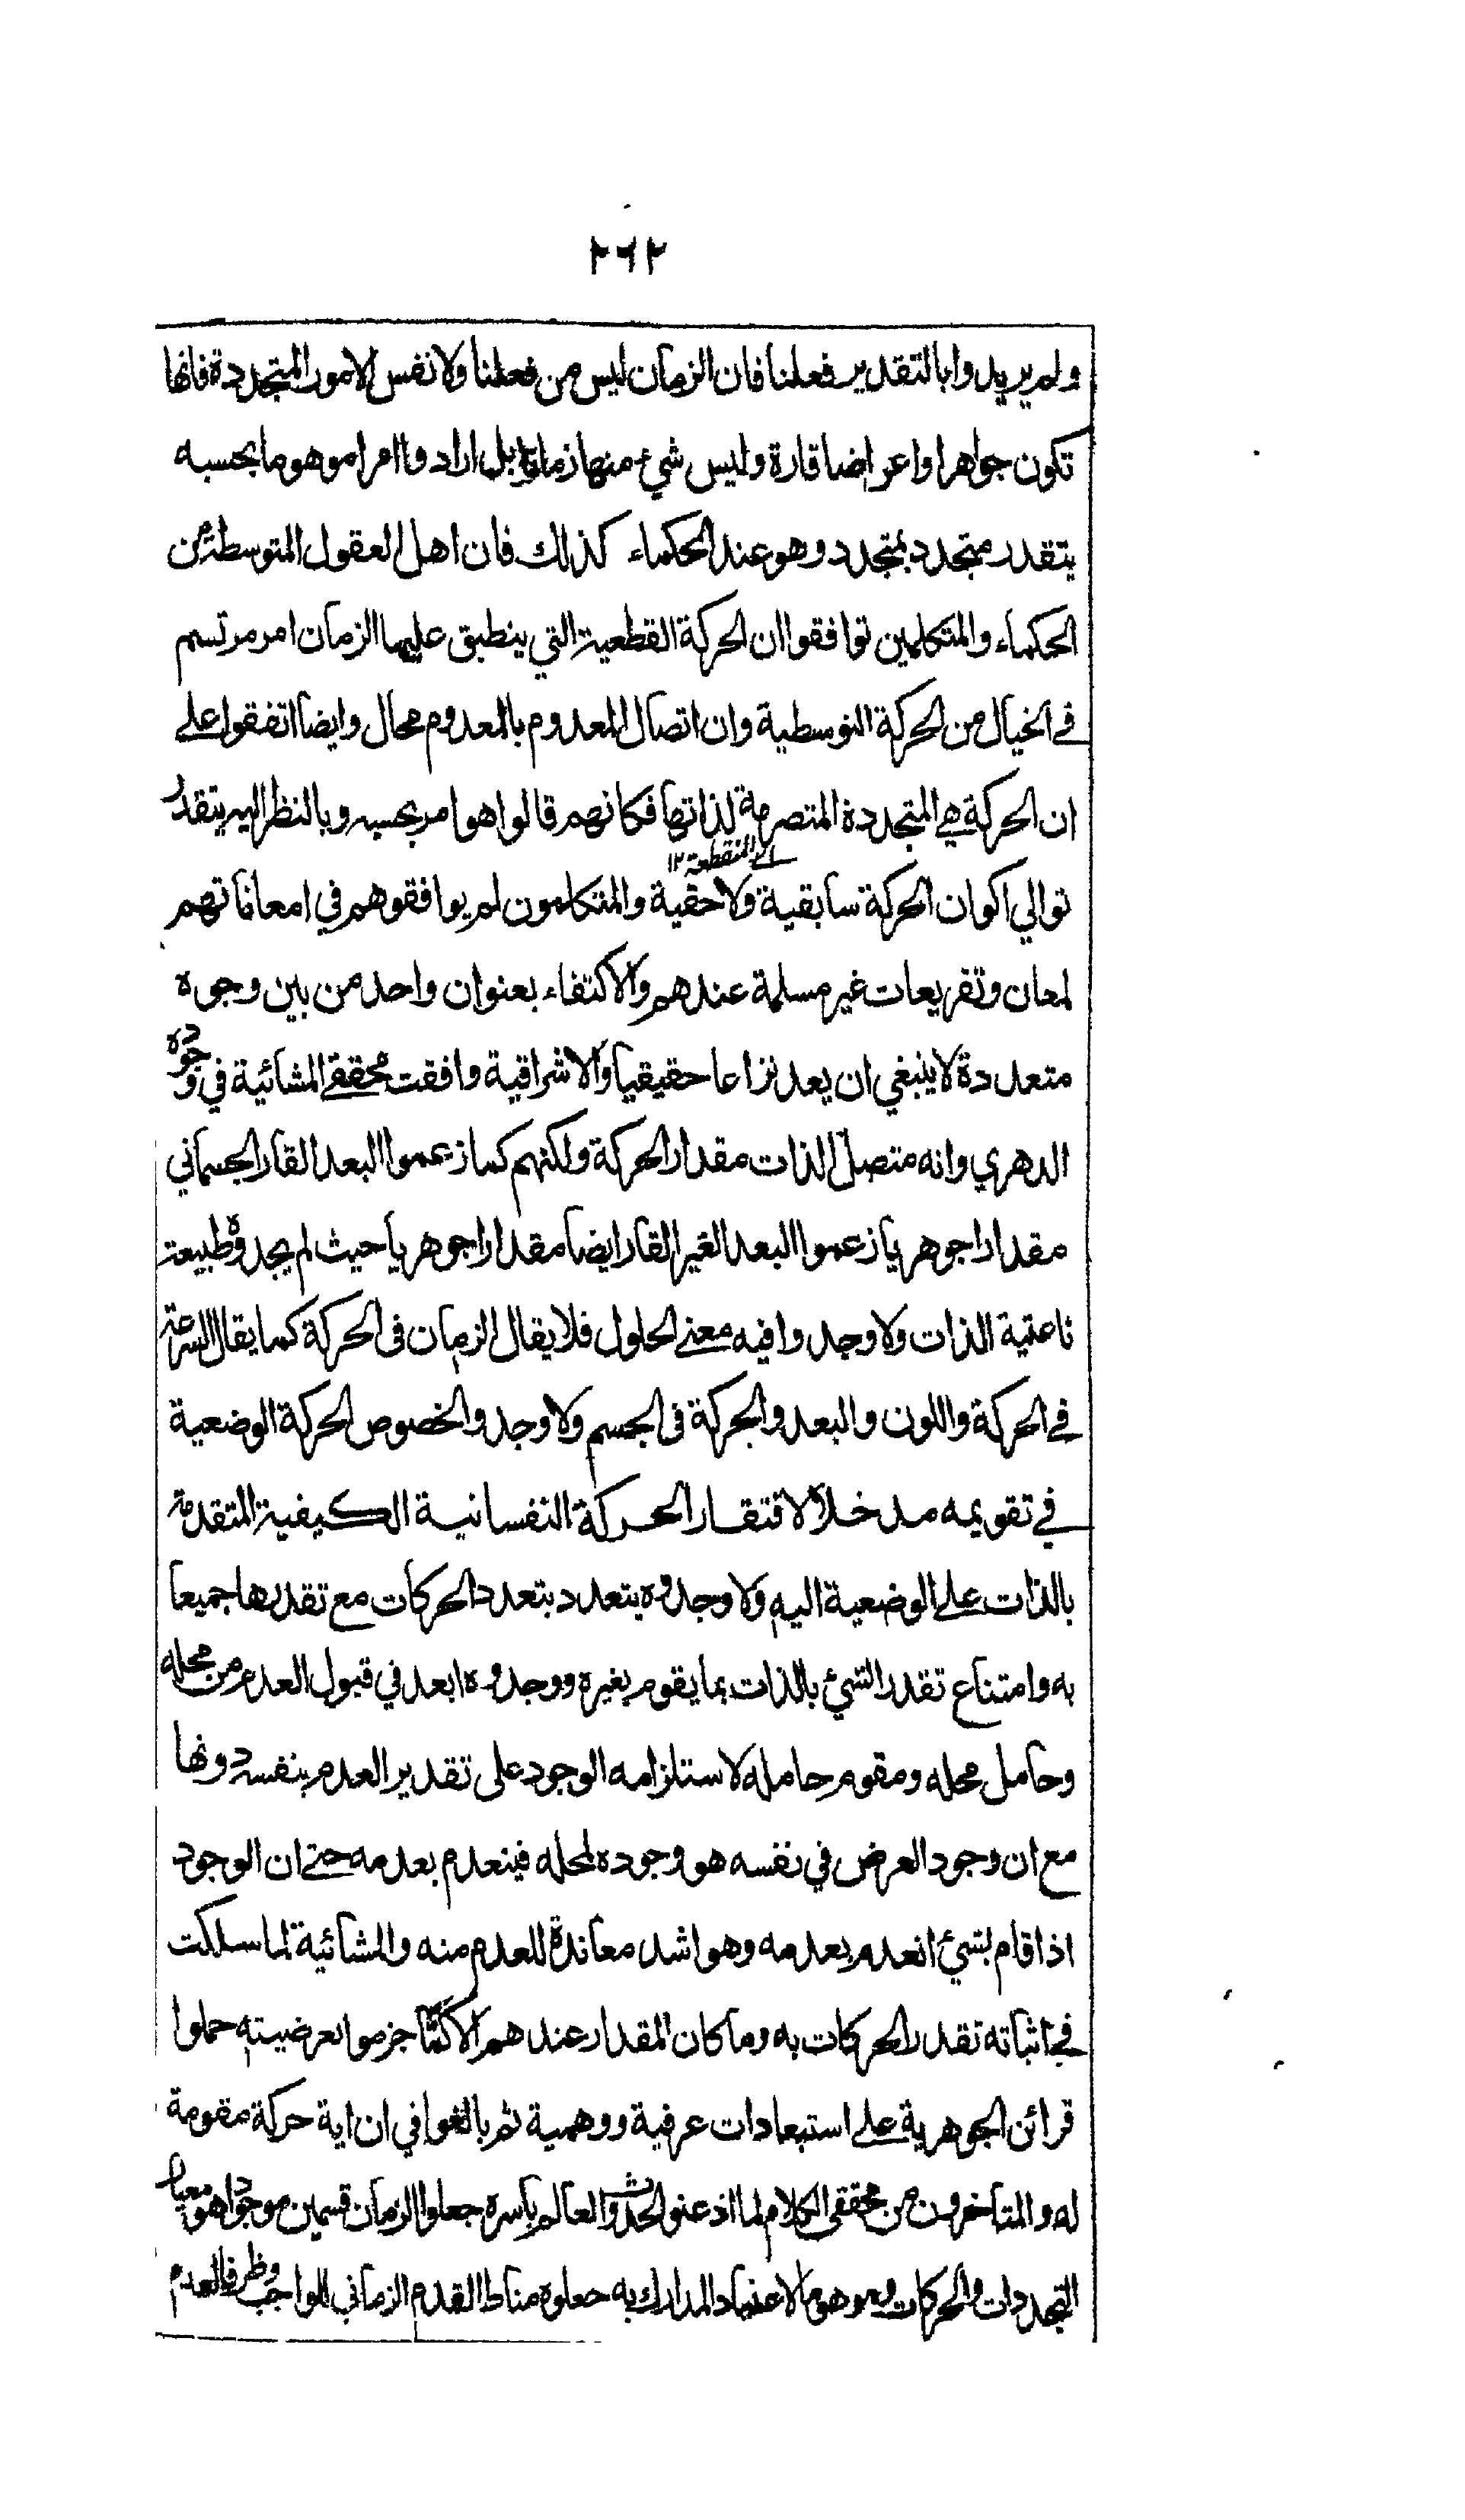 ٢٦٢
ولم يريدوا بالتقدير فعلنا فان الزمان ليس من فعلنا ولا نفس الامور المتجددة فانها
تكون جواهرا واعراضا قارة وليس شيء منها زمانا بل ارادوا امرا موهوما بحسبه
يتقدر متجدد بمتجدد وهو عند الحكماء كذلك فان اهل العقول المتوسطة من
الحكماء والمتكلمين توافقوا ان الحركة القطعية التي ينطبق عليها الزمان امر مرتسم
في الخيال من الحركة التوسطية وان اتصال المعدوم بالمعدوم محال وايضا اتفقوا على
ان الحركة هي المتجددة المتصرمة لذاتها فكانهم قالوا هو امر بحسبه وبالنظر اليه يتقدر
اي المنقطعة ١٢
توالي اكوان الحركة سابقية ولاحقية والمتكلمون لم يوافقوهم في امعاناتهم
لمعان وتفريعات غير مسلمة عندهم والاكتفاء بعنوان واحد من بين وجوه
متعددة لا ينبغي ان يعد نزاعا حقيقيا والاشراقية وافقت محققي المشائية في وجوده
الدهري وانه متصل الذات مقدار الحركة ولكنهم كما زعموا البعد القار الجسماني
مقدارا جوهريا زعموا البعد الغير القار ايضا مقدارا جوهريا حيث لم يجدوه طبيعة
ناعتية الذات ولا وجدوا فيه معنى الحلول فلا يقال الزمان في الحركة كما يقال السرعة
في الحركة واللون والبعد والحركة في الجسم ولا وجدوا لخصوص الحركة الوضعية
في تقويمه مدخلا لافتقار الحركة النفسانية الكيفية المتقدمة
بالذات على الوضعية اليه ولا وجدوه يتعدد بتعدد الحركات مع تقدرها جميعا
به وامتناع تقدر الشيء بالذات بما يقوم بغيره ووجدوه ابعد في قبول العدم من محله
وحامل محله ومقوم حامله لاستلزامه الوجود على تقدير العدم بنفسه دونها
مع ان وجود العرض في نفسه هو وجوده لمحله فينعدم بعدمه حتى ان الوجود
اذا قام بشيء انعدم بعدمه وهو اشد معاندة للعدم منه والمشائية لما سلكت
في اثباته تقدر الحركات به وما كان المقدار عندهم الا كمّا جزموا بعرضيته حملوا
قرائن الجوهرية على استبعادات عرفية ووهمية ثم بالغوا في ان اية حركة مقومة
له والمتاخرون من محققي الكلام لما اذعنوا لحدوث العالم باسره جعلوا الزمان قسمين موجودا هو معيار
التجددات والحركات وموهوما لاعتياد المدارك به جعلوه مناط القدم الزماني للواجب وظرفا لعدم